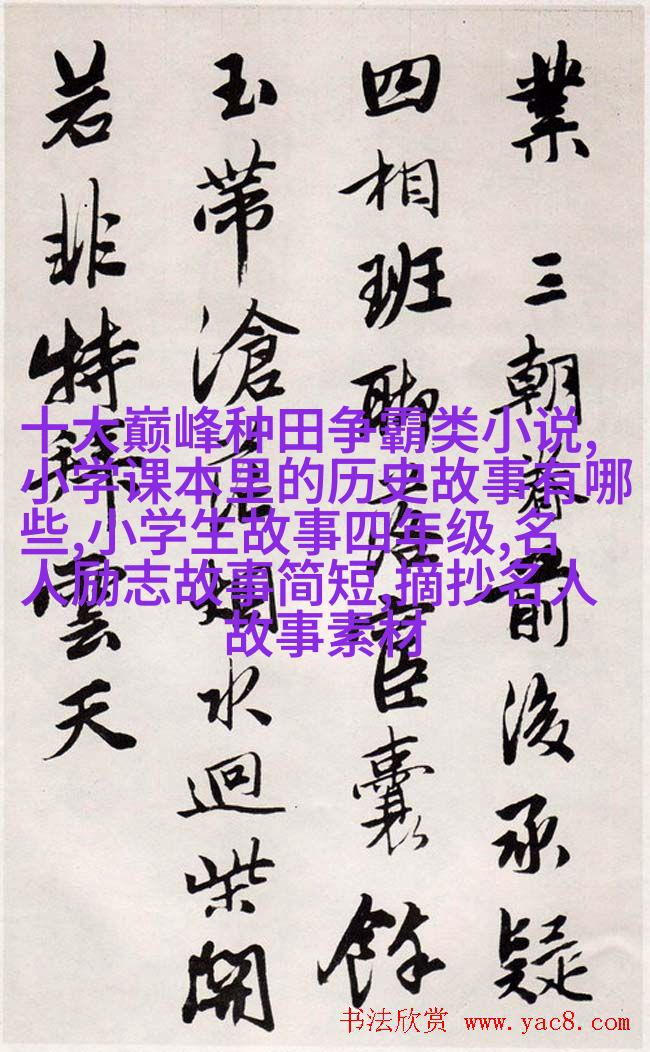 業 三朝眷前後承疑
四相班聯臣囊餘
玉帶滄烟水迴柴開
若非特拜雲天
十大巅峰种田争霸类小说,
小学课本里的历史故事有哪
些,小学生故事四年级,名
人励志故事简短,摘抄名人
故事素材
书法欣赏 www.yac8.com